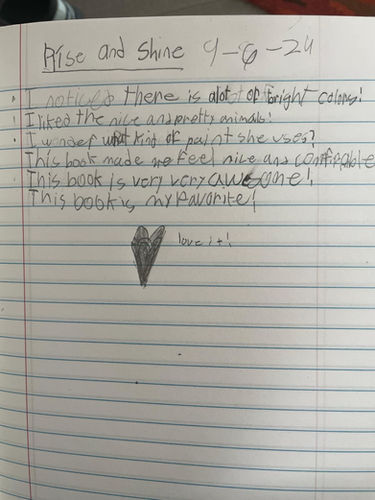 Rise and Shine 9-6-24
• I noticed there is alot of bright colors!
! I liked the nice and pretty animals!
• I wonder what kind of paint she uses?
This book made me feel nice and comftrable
This book is very very awesome!
This book is my favorite!
love it!